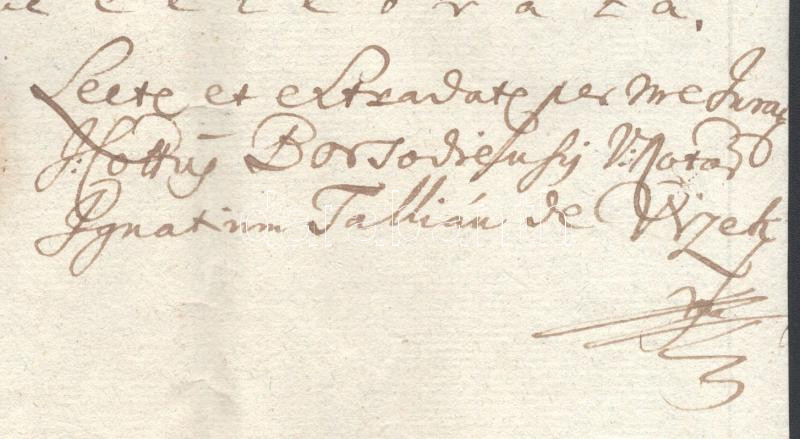 celebrata.
Lectę et extradatę per me Jurat
I: Cottus Borsodiensis V: Notar
Ignatium Tallián de Vizek